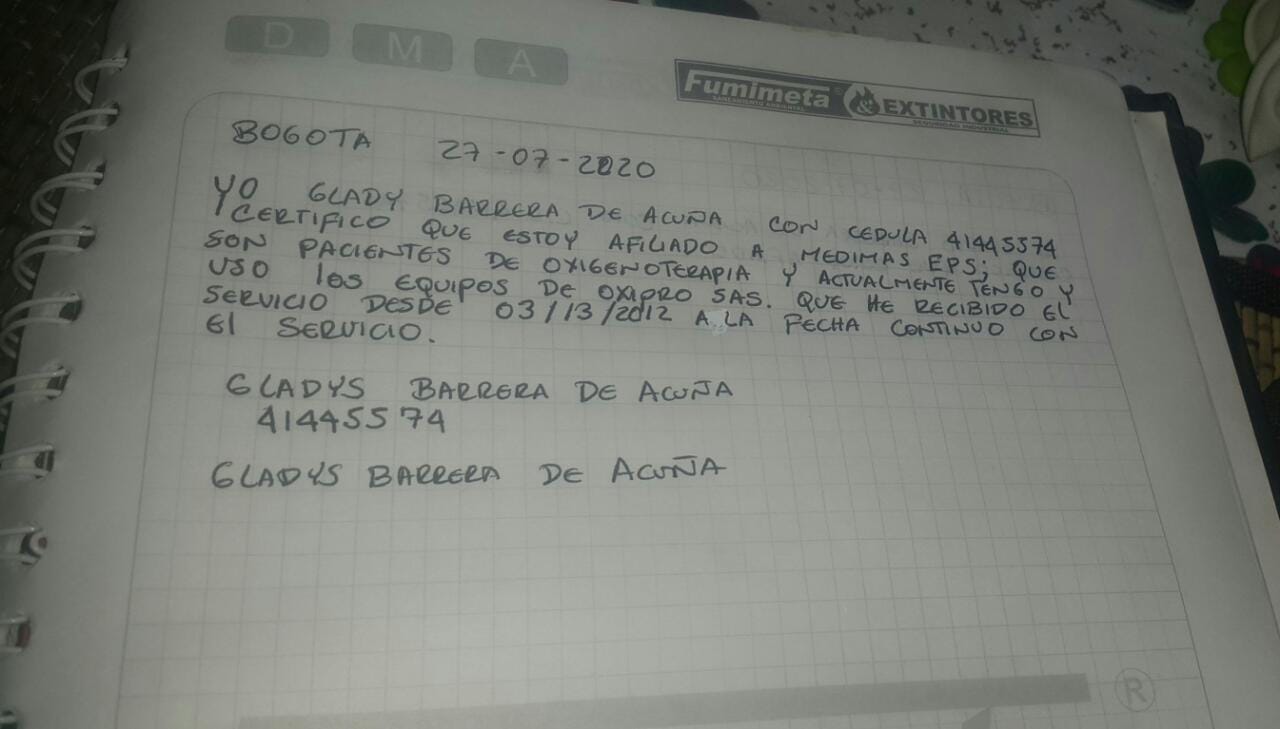 D M A
Fumimeta & EXTINTORES
SANEAMIENTO AMBIENTAL SEGURIDAD INDUSTRIAL
BOGOTA 27-07-2020
YO GLADY BARRERA DE ACUÑA CON CEDULA 41445574
CERTIFICO QUE ESTOY AFILIADO A MEDIMAS EPS; QUE
SON PACIENTES DE OXIGENOTERAPIA Y ACTUALMENTE TENGO Y
USO los EQUIPOS DE OXIPRO SAS. QUE HE RECIBIDO El
SERVICIO DESDE 03/13/2012 A LA FECHA CONTINUO CON
El SERVICIO.
GLADYS BARRERA DE ACUÑA
41445574
GLADYS BARRERA DE ACUÑA
®